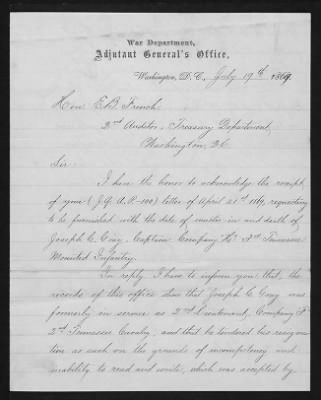 War Department,
Adjutant General's Office,
Washington, D.C., July 19th 1869.
Hon E.B. French
2nd Auditor, Treasury Department,
Washington, D.C.
Sir:
I have the honor to acknowledge the receipt,
of your (J.G.A.P.-100) letter of April 21st 1869, requesting
to be furnished with the date of muster in and death of
Joseph C. Gray, Captain Company "H" 3rd Tennessee
Mounted Infantry.
In reply I have to inform you that, the
records of this office show that Joseph C. Gray was
formerly in service as 2nd Lieutenant, Company F
2nd Tennessee Cavalry, and that he tendered his resigna-
tion as such on the grounds of incompetency and
inability to read and write, which was accepted by